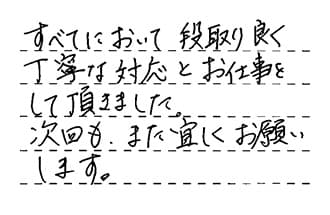 すべてにおいて段取り良く
丁寧な対応とお仕事を
して頂きました。
次回も、また宜しくお願い
します。